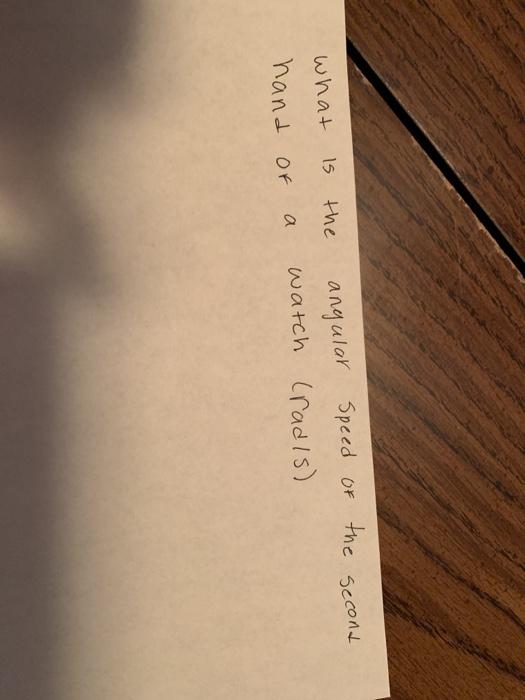 what is the angular speed of the second
hand of a watch (rad/s)